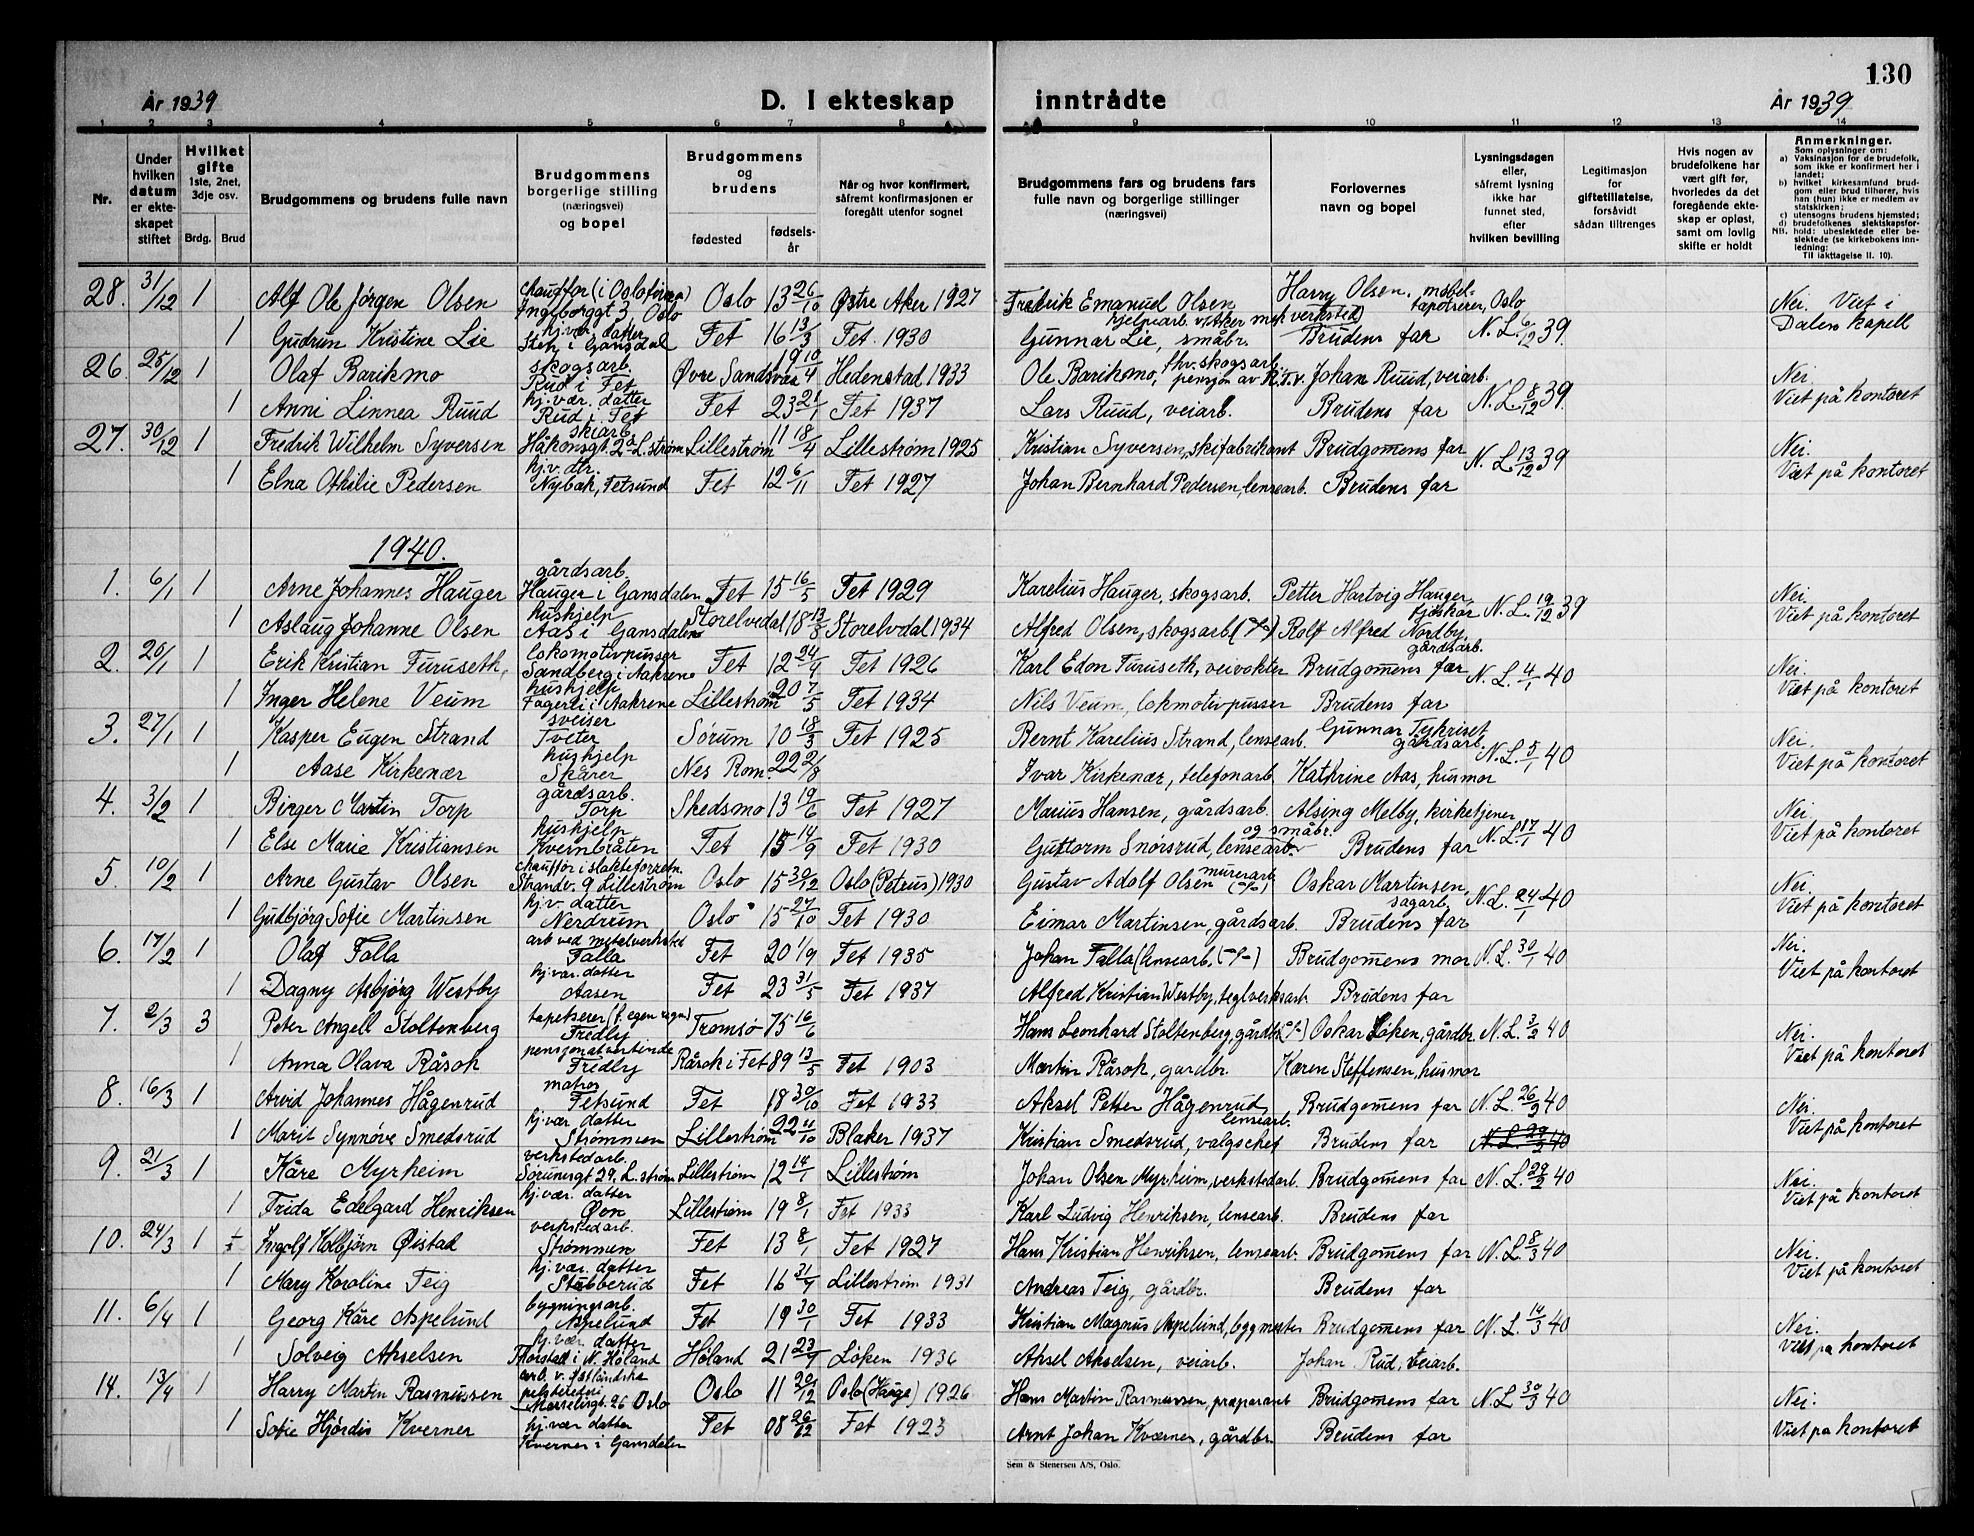 130
År 1939 D. I ekteskap inntrådte År 1939
1 2 3 4 5 6 7 8 9 10 11 12 13 14
Nr.
Under hvilken datum er ekteskapet stiftet
Hvilket gifte 1ste, 2net, 3dje osv.
Brdg. Brud
Brudgommens og brudens fulle navn
Brudgommens borgerlige stilling (næringsvei) og bopel
Brudgommens og brudens
fødested fødselsår
Når og hvor konfirmert, såfremt konfirmasjonen er foregått utenfor sognet
Brudgommens fars og brudens fars fulle navn og borgerlige stillinger (næringsvei)
Forlovernes navn og bopel
Lysningsdagen eller, såfremt lysning ikke har funnet sted, efter hvilken bevilling
Legitimasjon for giftetillatelse, forsåvidt sådan tiltrenges
Hvis nogen av brudefolkene har vært gift før, hvorledes da det foregående ekteskap er opløst, samt om lovlig skifte er holdt
Anmerkninger.
Som oplysninger om:
a) Vaksinasjon for de brudefolk, som ikke er konfirmert her i landet;
b) hvilket kirkesamfund brudgom eller brud tilhører, hvis han (hun) ikke er medlem av statskirken;
c) utensogns brudens hjemsted;
d) brudefolkenes slektskapsforhold: ubeslektede eller beslektede (se kirkebokens innledning:
NB. Til iakttagelse II. 10).
28. 31/12 1 Alf Ole Jörgen Olsen chauffør (i Oslofirma) Ingeborggt 3, Oslo Oslo 13 26/10 Østre Aker 1927 Fredrik Emanuel Olsen hjelpearb. v/Aker mek verksted) Harry Olsen, møbeltapetserer, Oslo N. L. 6/12 39. Nei. Viet i Dalen kapell
1 Gudrun Kristine Lie hj.vær. datter Sten i Gansdal Fet 16 13/3 Fet. 1930 Gunnar Lie, småbr. Brudens far
26. 25/12 1 Olaf Barikmo skogsarb. Rud i Fet Øvre Sandsvær 19 10/4 Hedenstad 1933 Ole Barikmo, fhv. skogsarb. pensjon av R.T.V. Johan Ruud, veiarb. N. L. 8/12 39. Nei. Viet på kontoret
1 Anni Linnea Ruud hj. vær. datter Rud i Fet Fet 23 21/1 Fet 1937 Lars Ruud, veiarb. Brudens far
27. 30/12 1 Fredrik Wilhelm Syversen skiarb. Håkonsgt. 2a L.strøm Lillestrøm 11 18/4 Lillestrøm 1925 Kristian Syversen, skifabrikant Brudgomens far N. L. 13/12 39 Nei. Viet på kontoret
1 Elna Othilie Pedersen hj. v. dtr. Nybak, Fetsund Fet 12 6/11 Fet 1927 Johan Bernhard Pedersen, lensearb. Brudens far
1940.
1. 6/1 1 Arne Johannes Hauger gårdsarb. Hauger i Gansdalen Fet 15 16/5 Fet 1929 Karelius Hauger, skogsarb. Petter Hartvig Hauger, fjøskar N. L. 19/12 39 Nei. Viet på kontoret
1 Aslaug Johanne Olsen hushjelp Aas i Gansdalen Storelvedal 18 13/8 Storelvdal 1934 Alfred Olsen, skogsarb Rolf Alfred Nordby, gårdsarb.
2. 20/1 1 Erik Kristian Furuseth, lokomotivpusser Sandberg i Aakrene Fet 12 24/9 Fet 1926 Karl Edon Furuseth, veivokter Brudgomens far N. L. 4/1 40 Nei. Viet på kontoret
1 Inger Helene Veum hushjelp Fagerli i Aakrene Lillestrøm 20 7/5 Fet 1934 Nils Veum, lokmotivpusser Brudens far
3. 27/1 1 Kasper Eugen Strand sveiser Tveter Sørum 10 18/3 Fet 1925 Bernt Karelius Strand, lensearb. Gunnar gårdsarb. N. L. 5/1 40 Nei. Viet på kontoret
1 Aase Kirkenær hushjelp Skårer Nes Rom. 22 2/8 Ivar Kirkenær, telefonarb Kathrine Aas, husmor
4. 3/2 1 Birger Martin Torp gårdsarb. Torp Skedsmo 13 19/6 Fet 1927 Marius Hansen, gårdsarb. Alsing Melby, kirketjener N. L. 17/1 40 Nei Viet på kontoret
1 Else Marie Kristiansen hushjelp Kvernbråten Fet 15 14/9 Fet 1930 Guttorm Snorsrud, lensearb. og småbr. Brudens far
5. 10/2 1 Arne Gustav Olsen chauffør i slakteforretn. Strandv. 9 Lillestrøm Oslo 15 30/12 Oslo (Petrus) 1930 Gustav Adolf Olsen murerarb. Oskar Martinsen, sagarb. N. L. 24/1 40 Nei. Viet på kontoret
1 Gudbjörg Sofie Martinsen hj. v. datter Nerdrum Oslo 15 27/10 Fet 1930 Eimar Martinsen, gårdsarb. Brudens far
6. 17/2 1 Olaf Falla arb ved metalverksted Falla Fet 20 1/9 Fet 1935 Johan Falla (lensearb. Brudgomens mor N. L. 30/1 40 Nei. Viet på kontoret
1 Dagny Asbjörg Westby hj. vær. datter Aasen Fet 23 31/5 Fet 1937 Alfred Kristian Westby, teglverksarb. Brudens far
7. 2/3 3 Peter Angell Stoltenberg tapetserer (f. egen regn) Fredly Tromsø 75 16/6 Hans Leonhard Stoltenberg, gårdbr. Oskar Løken, gårdbr. N. L. 3/2 40 Nei. Viet på kontoret
1 Anna Olava Råsok pensjonatvertinde Fredly Råsok i Fet 89 13/5 Fet 1903 Martin Råsok, gardbr. Karen Steffensen, husmor
8. 16/3 1 Arvid Johannes Hågenrud matros Fetsund Fet 18 30/10 Fet 1933 Aksel Petter Hågenrud, lensearb. Brudgomens far N. L. 26/2 40 Nei. Viet på kontoret
1 Marit Synnöve Smedsrud hj. vær datter Strømmen Lillestrøm 22 11/10 Blaker 1937 Kristian Smedsrud, valgschef Brudens far N. L. 29/2 40
9. 21/3 1 Kåre Myrheim verkstedarb. Sørumsgt 29, L. strøm Lillestrøm 12 14/1 Lillestrøm Johan Olsen Myrheim, verkstedarb. Brudgomens far N. L. 29/2 40 Nei. Viet på kontoret
1 Frida Edelgard Henriksen hj. vær. datter Øon Lillestrøm 19 8/1 Fet 1933 Karl Ludvig Henriksen, lensearb. Brudens far
10. 24/3 1 Ingolf Kolbjörn Øistad verkstedarb. Strømmen Fet 13 8/1 Fet 1927 Hans Kristian Henriksen, lensearb. Brudgomens far N. L. 8/3 40 Nei. Viet på kontoret
1 Mary Karoline Teig hj. vær. datter Stubberud Fet 16 31/7 Lillestrøm 1931 Andreas Teig, gårdbr. Brudens far
11. 6/4 1 Georg Kåre Aspelund bygningsarb. Aspelund Fet 19 30/1 Fet 1933 Kristian Magnus Aspelund, byggmester Brudgomens far N. L. 14/3 40 Nei. Viet på kontoret
1 Solveig Akselsen hj. vær. datter Thorstad i N. Høland Høland 21 23/9 Løken 1936 Aksel Akselsen, veiarb. Johan Rud, veiarb.
14. 13/4 1 Harry Martin Rasmussen arb. v. Østlandske Marselisgt. 26 Oslo Oslo 11 20/12 Oslo (Hauge) 1926 Hans Martin Rasmussen, preparant Brudgomens far N. L. 30/3 40 Nei. Viet på kontoret
1 Sofie Hjördis Kverner hj. vær datter Kverner i Gansdalen Fet 08 26/12 Fet 1923 Arnt Johan Kværner, gårdbr. Brudens far
Sem & Stenersen A/S, Oslo.